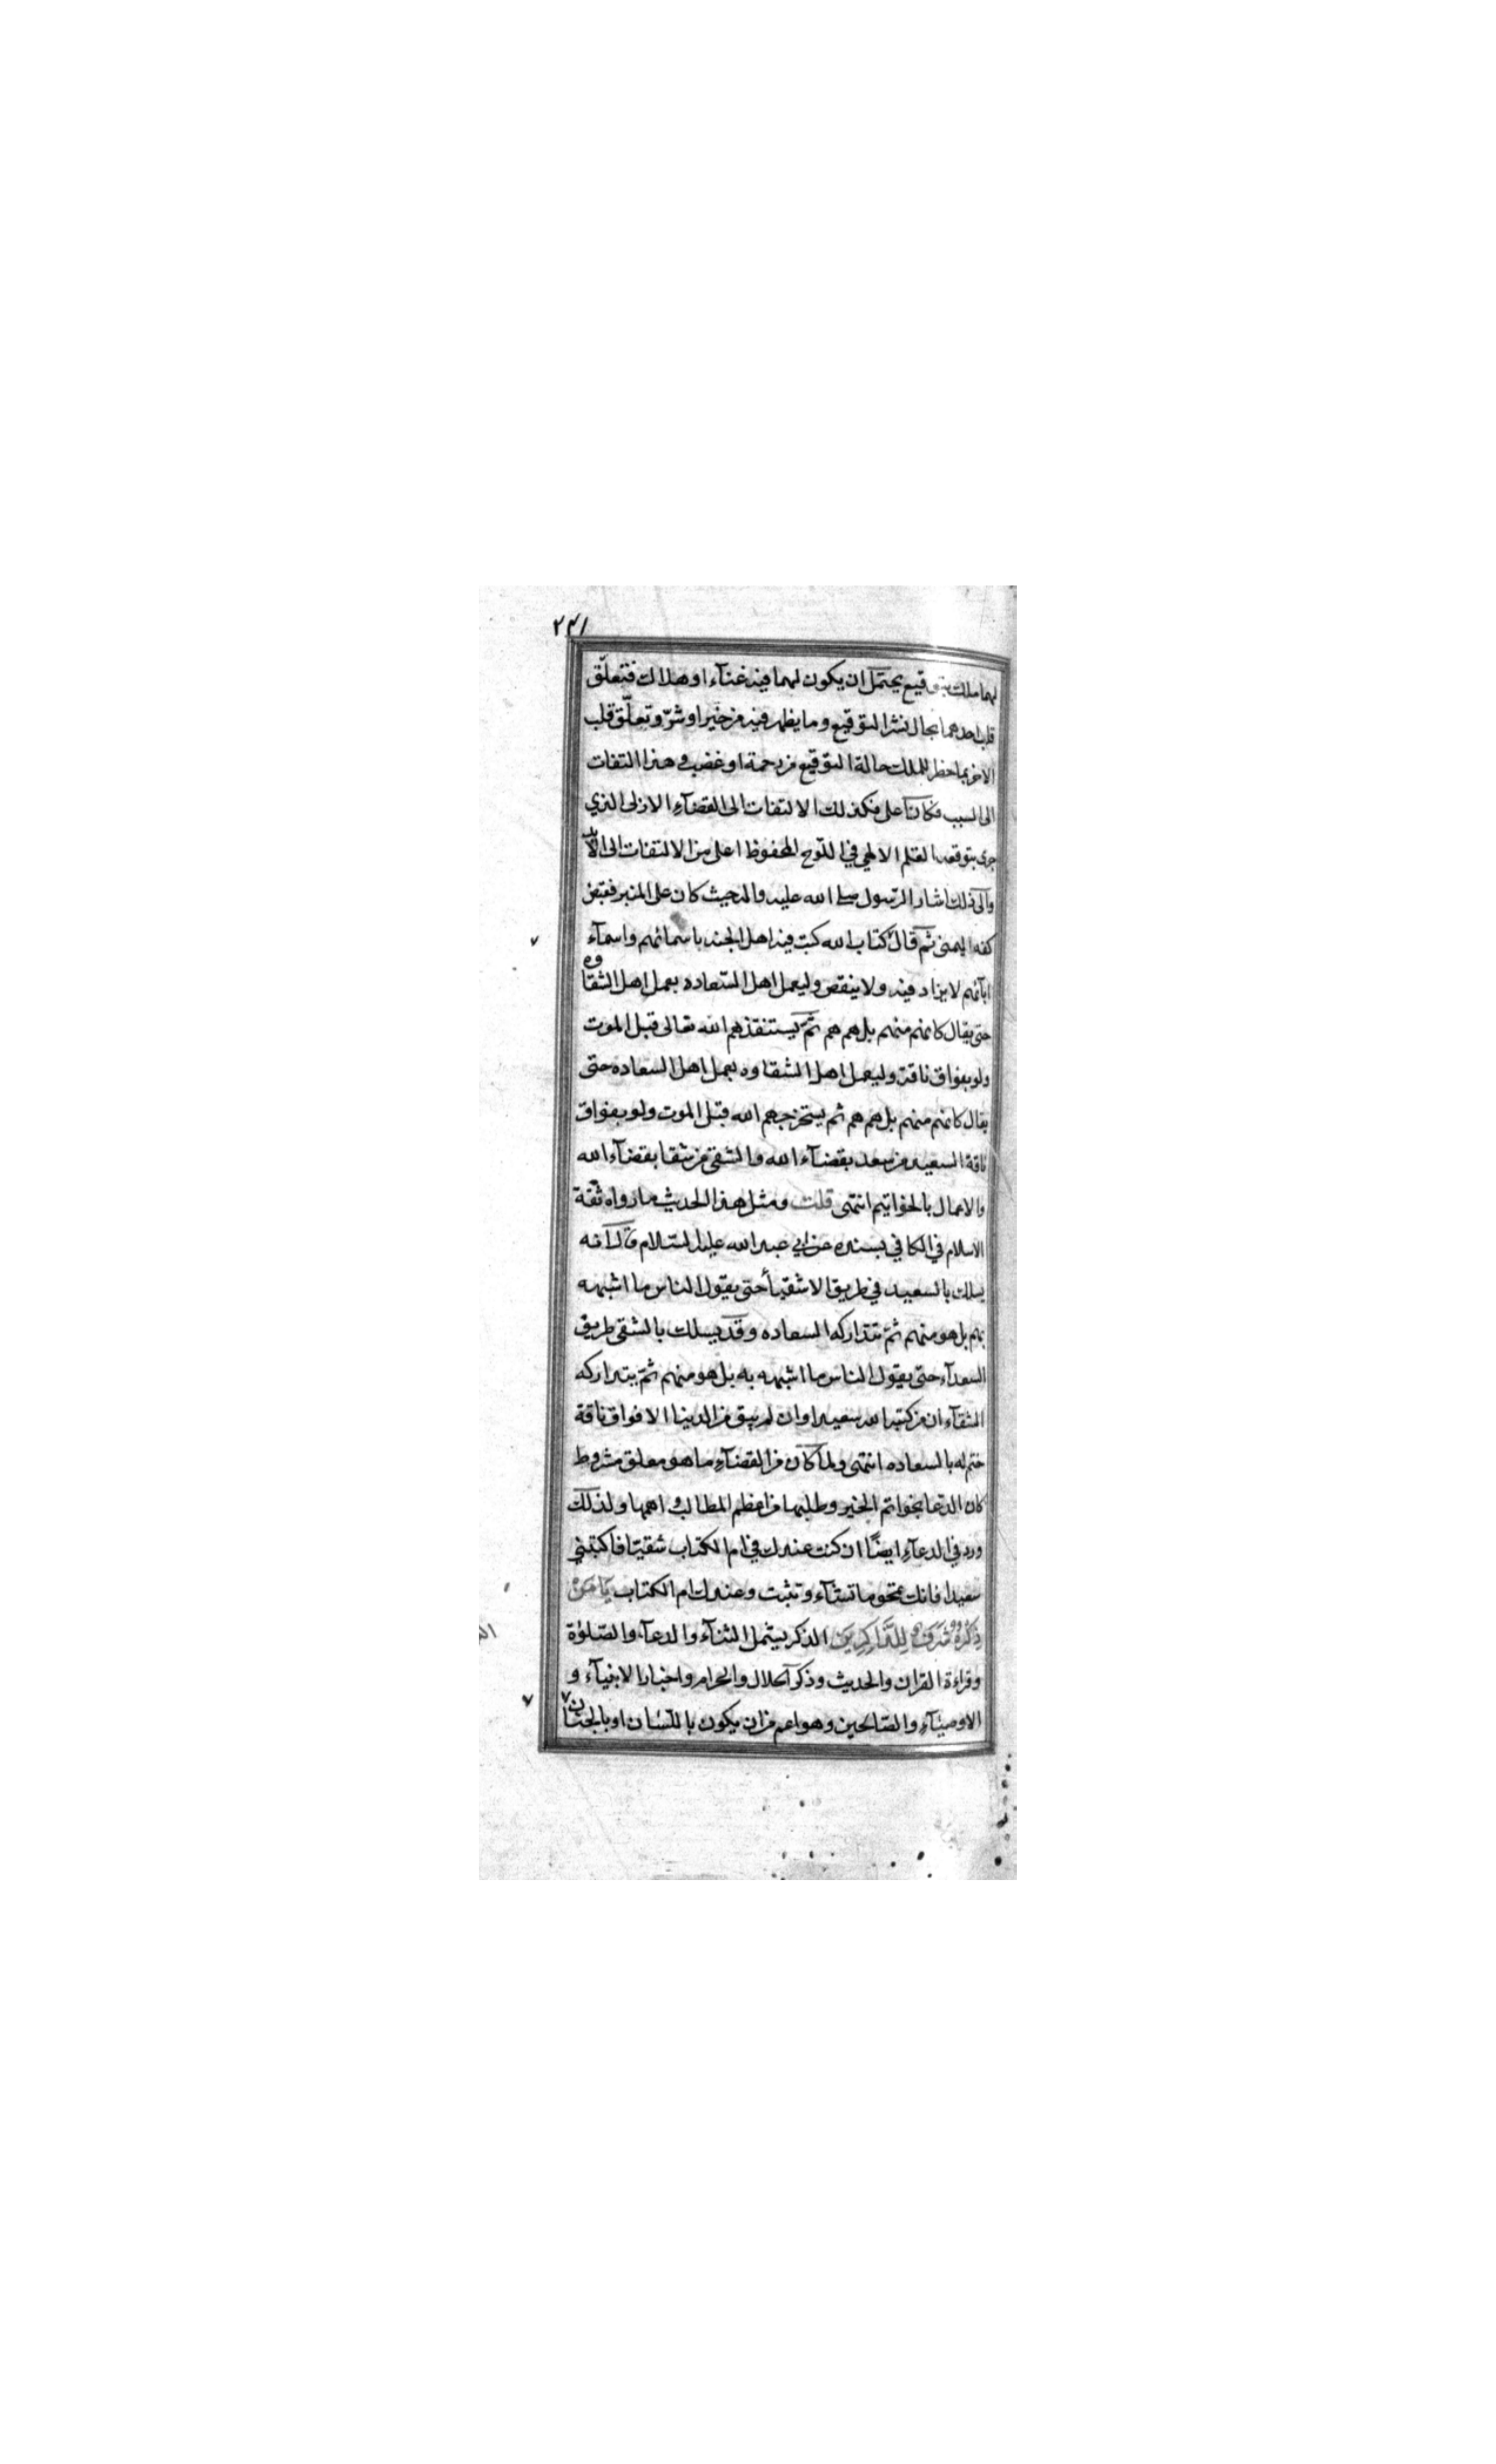 ٢٣١
لهما ملك بتوقيع يحتمل ان يكون لهما فيه غنآء او هلاك فتعلّق
قلب احدهما بحال نشر التوقيع وما يظهر فيه من خير او شرّ وتعلّق قلب
الاخر بما خطر للملك حالة التوقيع من رحمة او غضب وهذا التفات
الى السبب فكان اعلى فكذلك الالتفات الى القضآء الازلى الذي
جرى بتوقعه القلم الالهي في اللّوح المحفوظ اعلى من الالتفات الى الابد
والى ذلك اشار الرّسول صلى الله عليه واله حيث كان على المنبر فقبض
كفه اليمنى ثم قال كتاب الله كتب فيه اهل الجنه باسمائهم واسمآء
ابآئهم لا يزاد فيه ولا ينقص وليعمل اهل السّعاده بعمل اهل الشقاوه
حتى يقال كانهم منهم بل هم هم ثمّ يستنقذهم الله تعالى قبل الموت
ولو بفواق ناقة وليعمل اهل الشقاوه بعمل اهل السعاده حتى
يقال كانهم منهم بل هم هم ثم يستخرجهم الله قبل الموت ولو بفواق
ناقة السعيد من سعد بقضآء الله والشقى من شقا بقضآء الله
والاعمال بالخواتيم انتهى قلت ومثل هذا الحديث ما رواه ثقة
الاسلام في الكافي بسنده عن ابي عبد الله عليه السّلام قال انه
يسلك بالسعيد في طريق الاشقيأ حتى يقول الناس ما اشبهه
بهم بل هو منهم ثمّ تتداركه السعاده وقد يسلك بالشقى طريق
السعدآء حتى يقول الناس ما اشبهه به بل هو منهم ثمّ يتداركه
الشقآء ان من كتبه الله سعيدا وان لم يبق من الدنيا الا فواق ناقة
ختم له بالسعاده انتهى ولما كان من القضآء ما هو معلق مشروط
كان الدعا بخواتم الخير وطلبها من اعظم المطالب واهمها ولذلك
ورد في الدعآء ايضًا ان كنت عندك في ام الكتاب شقيّا فاكتبني
سعيدا فانك تمحو ما تشآء وتثبت وعندك ام الكتاب يَا مَنْ
ذِكْرُهُ شَرَفٌ لِلذَّاكِرِينَ الذكر يشمل الثنآء والدعآء والصّلوة
وقراءة القران والحديث وذكر الحلال والحرام واخبار الانبيآء و
الاوصيآء والصّالحين وهو اعم من ان يكون باللّسان او بالجنان